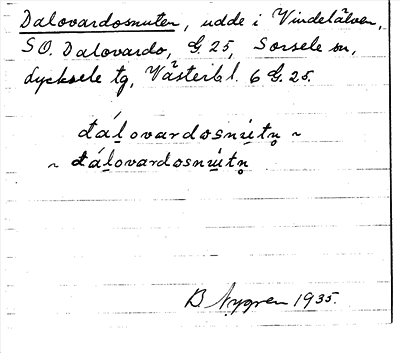 Dalovardosnuten, udde i Vindelälven,
SO. Dalovardo, G. 25, Sorsele sn,
Lycksele tg, Västerb l. 6 G. 25.
đálovardosnútn̥ ~
~ đálovardosnútn̥
B Nygren 1935.